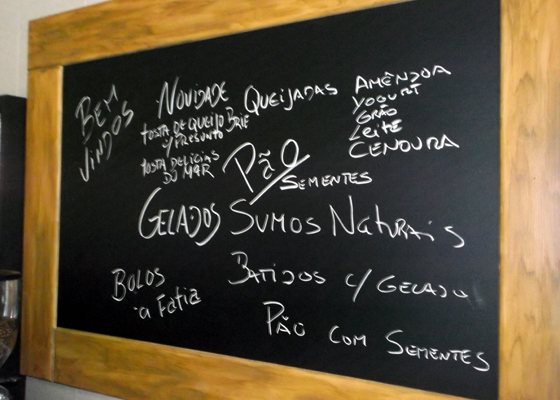 BEM
VINDOS
NOVIDADE
TOSTA DE QUEIJO BRIE
C/ PRESUNTO
TOSTA DELÍCIAS
DO MAR
QUEIJADAS
AMÊNDOA
YOGURT
GRÃO
LEITE
CENOURA
PÃO
SEMENTES
GELADOS SUMOS NATURAIS
BOLOS
à FATIA
BATIDOS C/ GELADO
PÃO COM SEMENTES